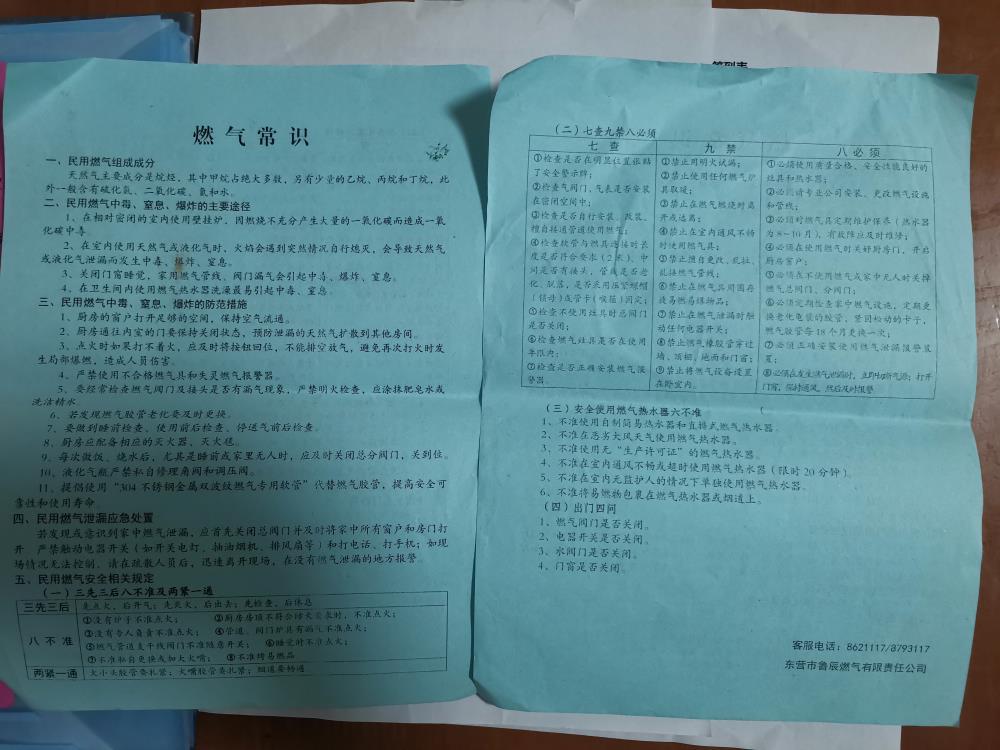 签到表
燃气常识
一、民用燃气组成成分
天然气主要成分是烷烃，其中甲烷占绝大多数，另有少量的乙烷、丙烷和丁烷，此
外一般含有硫化氢、二氧化碳、氮和水。
二、民用燃气中毒、窒息、爆炸的主要途径
1、在相对密闭的室内使用壁挂炉，因燃烧不充分产生大量的一氧化碳而造成一氧
化碳中毒。
2、在室内使用天然气或液化气时，火焰会遇到突然情况自行熄灭，会导致天然气
或液化气泄漏而发生中毒、爆炸、窒息。
3、关闭门窗睡觉，家用燃气管线、阀门漏气会引起中毒、爆炸、窒息。
4、在卫生间内使用燃气热水器洗澡最易引起中毒、窒息。
三、民用燃气中毒、窒息、爆炸的防范措施
1、厨房的窗户打开足够的空间，保持空气流通。
2、厨房通往内室的门要保持关闭状态，预防泄漏的天然气扩散到其他房间。
3、点火时如果打不着火，应及时将按钮回位，不能排空放气，避免再次打火时发
生局部爆燃，造成人员伤害。
4、严禁使用不合格燃气具和失灵燃气报警器。
5、要经常检查燃气阀门及接头是否有漏气现象，严禁明火检查，应涂抹肥皂水或
洗洁精水。
6、若发现燃气胶管老化要及时更换。
7、要做到睡前检查、使用前后检查、停送气前后检查。
8、厨房应配备相应的灭火器、灭火毯。
9、每次做饭、烧水后，尤其是睡前或家里无人时，应及时关闭总分阀门，关到位。
10、液化气瓶严禁私自修理角阀和调压阀。
11、提倡使用“304不锈钢金属双波纹燃气专用软管”代替燃气胶管，提高安全可
靠性和使用寿命。
四、民用燃气泄漏应急处置
若发现或意识到家中燃气泄漏，应首先关闭总阀门并及时将家中所有窗户和房门打
开，严禁触动电器开关（如开关电灯、抽油烟机、排风扇等）和打电话、打手机；如现
场情况无法控制，请在疏散人员后，迅速离开现场，在没有燃气泄漏的地方报警。
五、民用燃气安全相关规定
（一）三先三后八不准及两紧一通
三先三后 先点火，后开气；先灭火，后出去；先检查，后休息
八不准 ①没有炉子不准点火； ②厨房房顶不符合防火要求时，不准点火；
③没有专人负责不准点火； ④管道、阀门炉具有漏气不准点火；
⑤燃气管道支干线阀门不准随意开关； ⑥睡觉时不准点火；
⑦不准私自更换或加大火嘴； ⑧不准烤易燃品
两紧一通 大小头胶管要扎紧；火嘴胶管要扎紧；烟道要畅通
（二）七查九禁八必须
七查 九禁 八必须
①检查是否在明显位置张贴
了安全警示牌；
②检查气阀门、气表是否安装
在密闭空间中；
③检查是否自行安装、改装、
擅自接通管道使用燃气；
④检查软管与燃具连接时长
度是否符合要求（2米）、中
间是否有接头，管线是否老
化、脱落，是否采用压紧螺帽
（锁母）或管卡（喉箍）固定；
⑤检查不使用灶具时总阀门
是否关闭；
⑥检查燃气灶具是否在使用
年限内；
⑦检查是否正确安装燃气报
警器。
①禁止用明火试漏；
②禁止使用任何燃气炉
具取暖；
③禁止在燃气燃烧时离
开或远离；
④禁止在室内通风不畅
时使用燃气具；
⑤禁止擅自更改、乱拉、
乱接燃气管线；
⑥禁止在燃气具周围存
放易燃易爆物品；
⑦禁止在燃气泄漏时触
动任何电器开关；
⑧禁止燃气橡胶管穿过
墙、顶棚、地面和门窗；
⑨禁止将燃气设备设置
在卧室内。
①必须使用质量合格、安全性能良好的
灶具和热水器；
②必须请专业公司安装、更改燃气设施
和管线；
③必须对燃气具定期维护保养（热水器
为8-10月），有故障应及时维修；
④必须在使用燃气时关好厨房门，开启
厨房窗户；
⑤必须在不使用燃气或家中无人时关掉
燃气总阀门、分阀门；
⑥必须定期检查家中燃气设施，定期更
换老化龟裂的胶管，紧固松动的卡子，
燃气胶管每18个月更换一次；
⑦必须正确安装使用燃气泄漏报警装
置；
⑧必须在发生燃气泄漏时，立即切断气源；打开
门窗，保持通风，然后及时报警
（三）安全使用燃气热水器六不准
1、不准使用自制简易热水器和直排式燃气热水器。
2、不准在恶劣大风天气使用燃气热水器。
3、不准使用无“生产许可证”的燃气热水器。
4、不准在室内通风不畅或超时使用燃气热水器（限时20分钟）。
5、不准在室内无监护人的情况下单独使用燃气热水器。
6、不准将易燃物包裹在燃气热水器或烟道上。
（四）出门四问
1、燃气阀门是否关闭。
2、电器开关是否关闭。
3、水阀门是否关闭。
4、门窗是否关闭。
客服电话：8621117/8793117
东营市鲁辰燃气有限责任公司